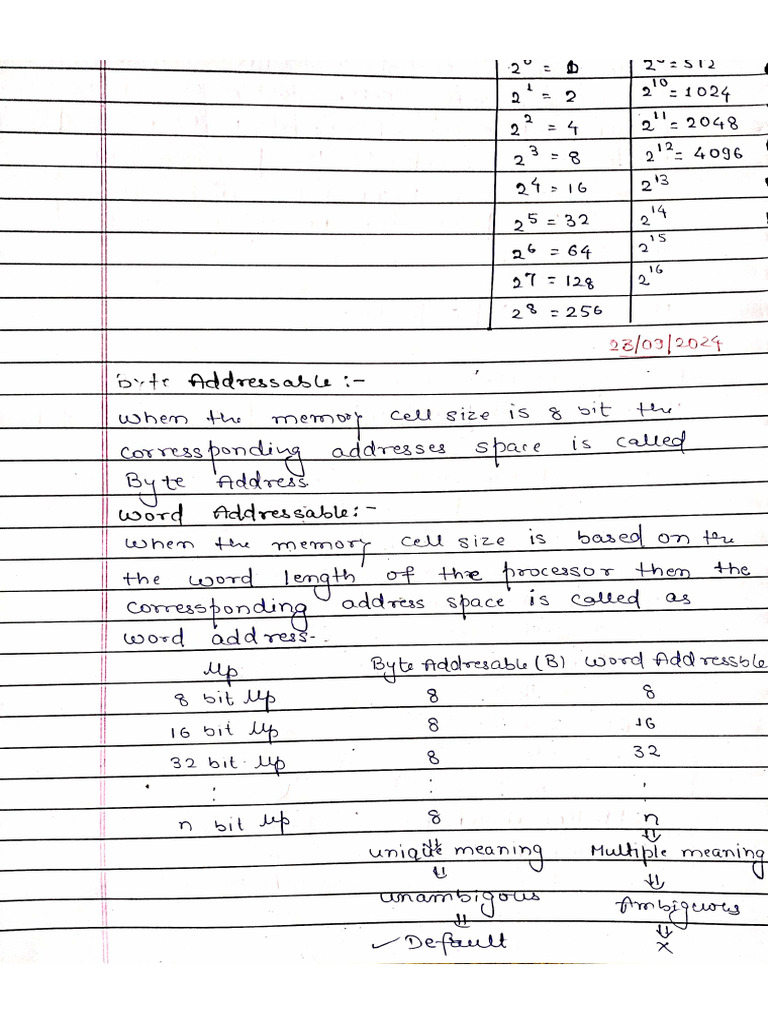 2⁰ = 1 2⁹ = 512
2¹ = 2 2¹⁰ = 1024
2² = 4 2¹¹ = 2048
2³ = 8 2¹² = 4096
2⁴ = 16 2¹³
2⁵ = 32 2¹⁴
2⁶ = 64 2¹⁵
2⁷ = 128 2¹⁶
2⁸ = 256
23/09/2024
Byte Addressable :-
When the memory cell size is 8 bit the
corressponding addresses space is called
Byte Address
Word Addressable:-
When the memory cell size is based on the
the word length of the processor then the
corressponding address space is called as
word address.
Mp Byte Addresable (B) Word Addressble
8 bit Mp 8 8
16 bit Mp 8 16
32 bit Mp 8 32
⋮ ⋮ ⋮
n bit Mp 8 n
⇓ ⇓
unique meaning Multiple meaning
⇓ ⇓
unambigous Ambiguous
⇓ ⇓
✓ Default x